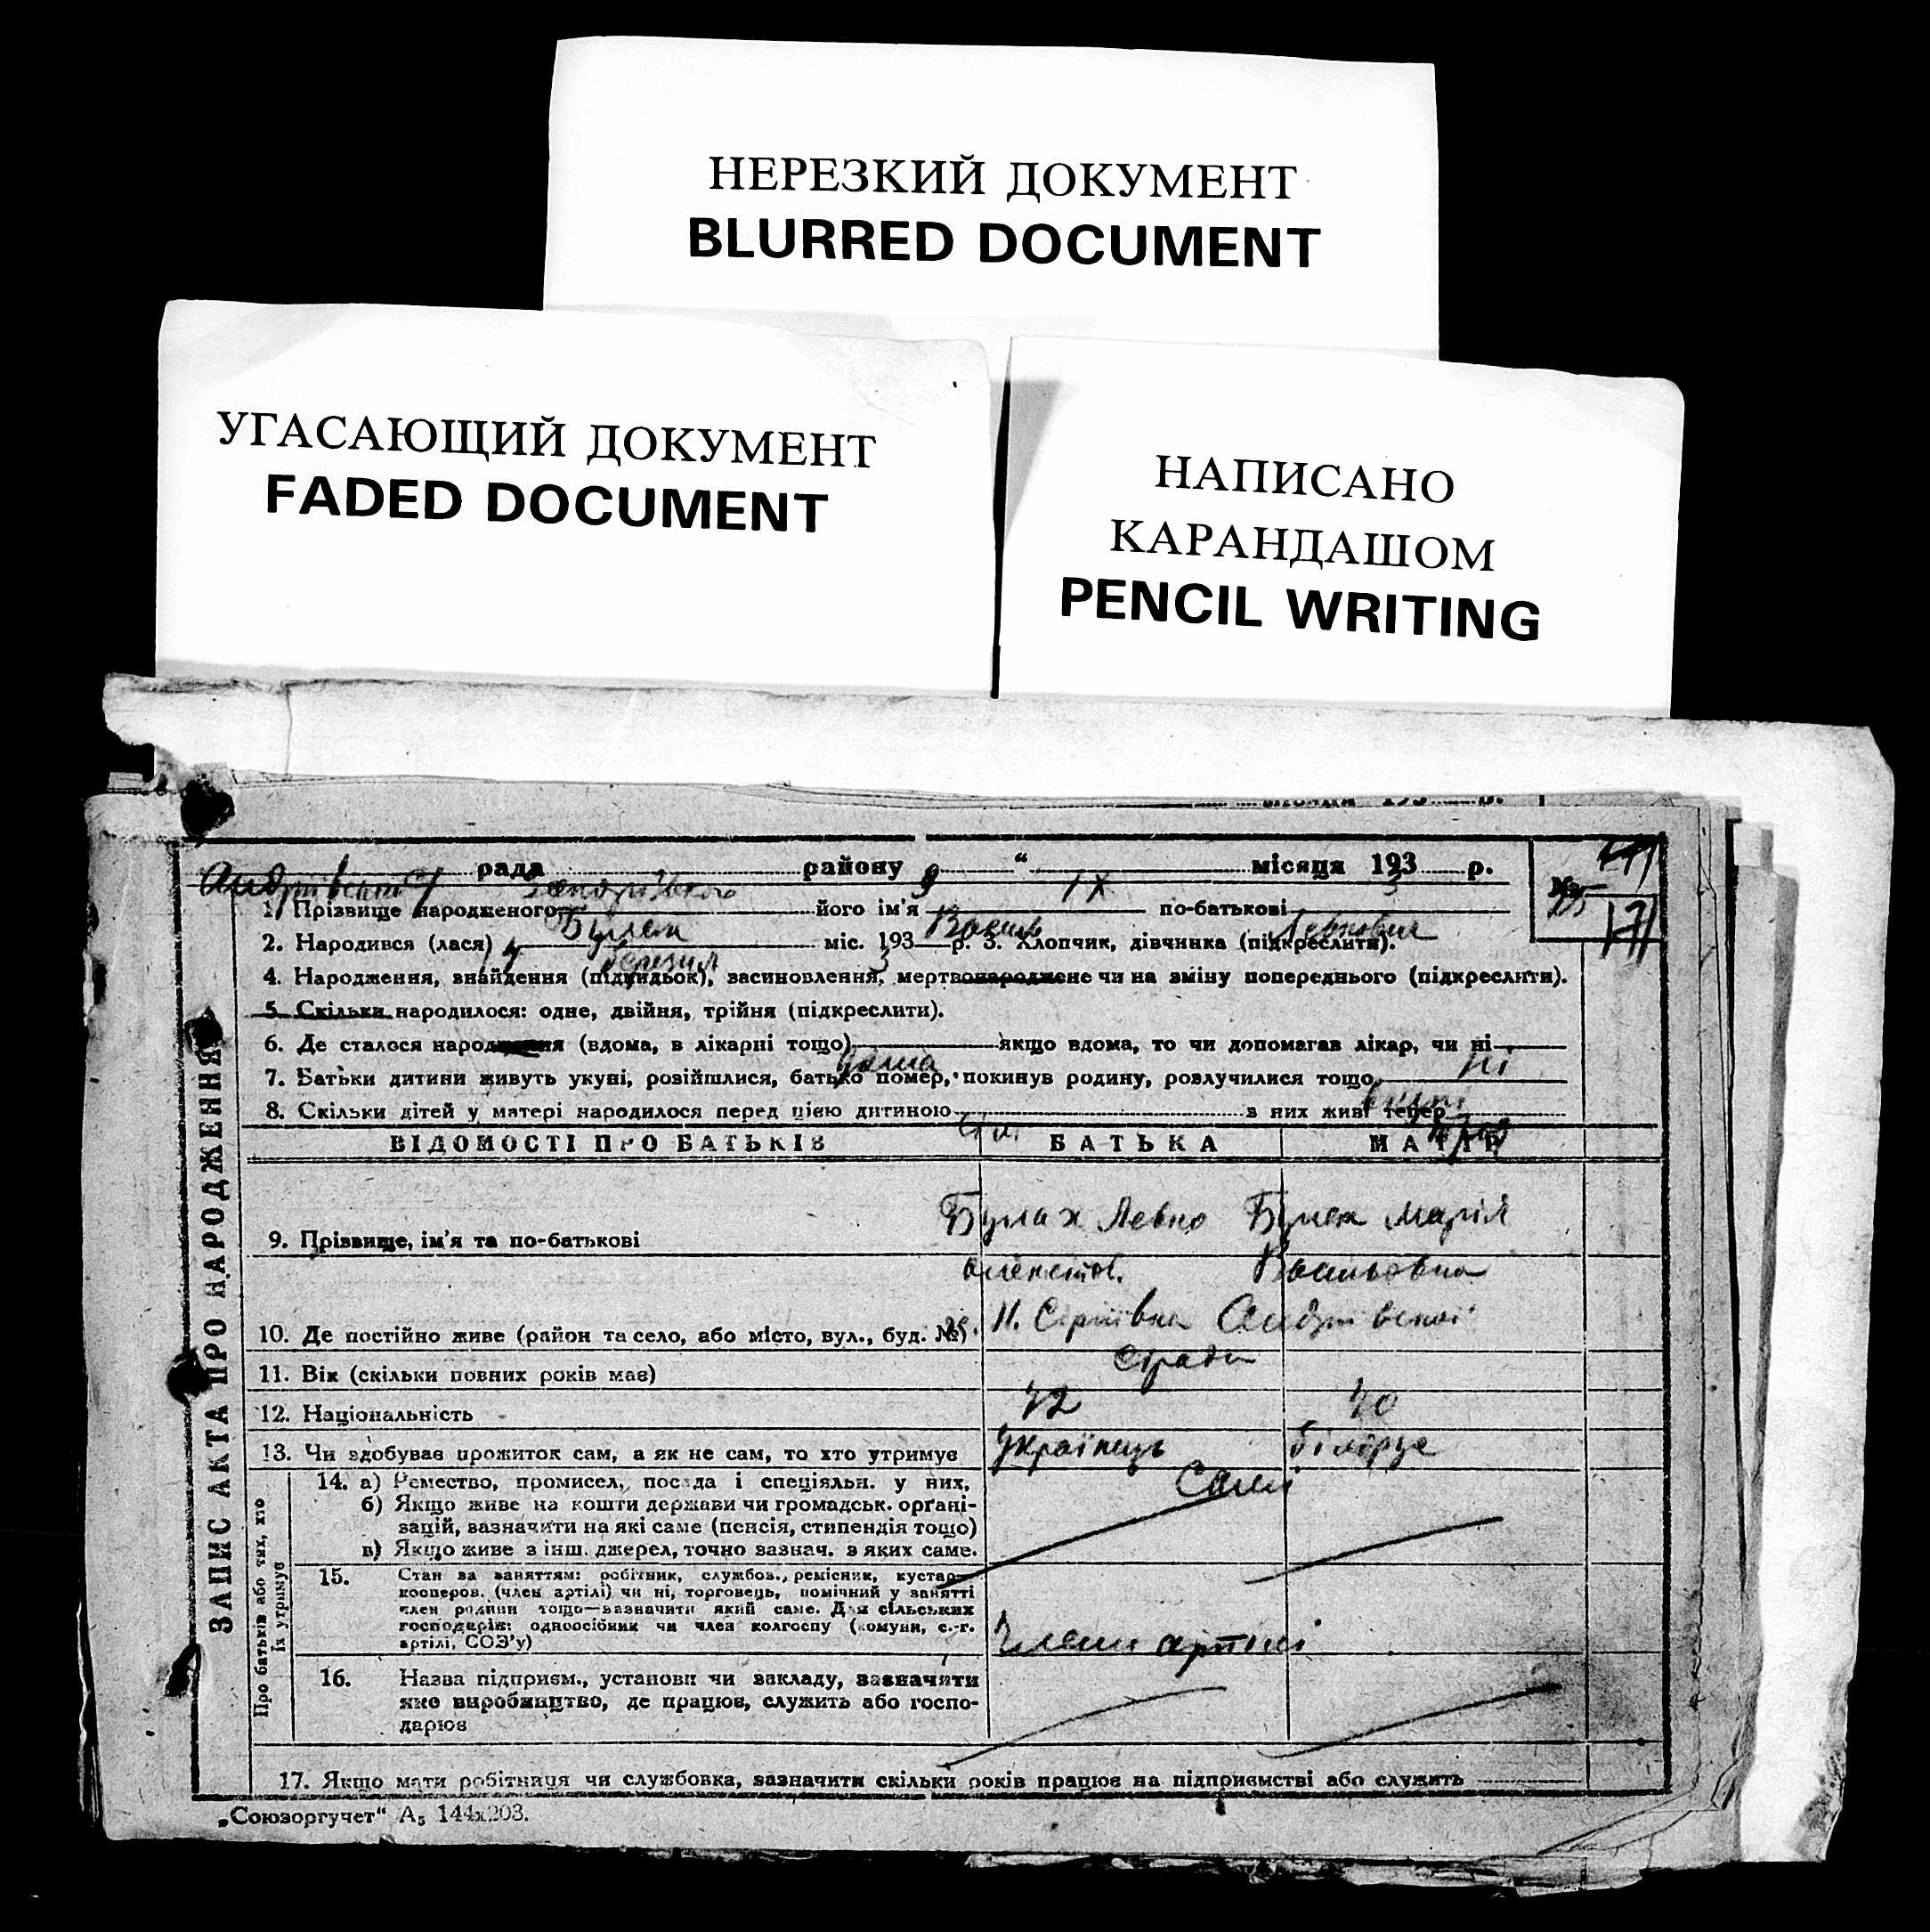 НЕРЕЗКИЙ ДОКУМЕНТ
BLURRED DOCUMENT
УГАСАЮЩИЙ ДОКУМЕНТ
FADED DOCUMENT
НАПИСАНО
КАРАНДАШОМ
PENCIL WRITING
рада району 9 " IX місяця 193 3 р.
171
1. Прізвище народженого Булах його ім'я Василь по-батькові Левкович
2. Народився (лася) 14 березня міс. 193 3 р. 3. Хлопчик, дівчинка (підкреслити).
4. Народження, знайдення (підкидьок), засиновлення, мертвонароджене чи на зміну попереднього (підкреслити).
5. Скільки народилося: одне, двійня, трійня (підкреслити).
6. Де сталося народження (вдома, в лікарні тощо) дома якщо вдома, то чи допомагав лікар, чи ні ні
7. Батьки дитини живуть укупі, розійшлися, батько помер, покинув родину, розлучилися тощо
8. Скільки дітей у матері народилося перед цією дитиною з них живі тепер
ВІДОМОСТІ ПРО БАТЬКІВ БАТЬКА МАТІР
9. Прізвище, ім'я та по-батькові Булах Левко Булах Марія
Васильовна
10. Де постійно живе (район та село, або місто, вул., буд. №) Н. Сергіївка Андріївської
с/ради
11. Вік (скільки повних років має) 42 40
12. Національність Українець
13. Чи здобуває прожиток сам, а як не сам, то хто утримує Сами
Про батьків або тих, хто їх утримує
14. а) Ремество, промисел, посада і спеціяльн. у них,
б) Якщо живе на кошти держави чи громадськ. органі-
зацій, вазначити на які саме (пенсія, стипендія тощо)
в) Якщо живе з інш. джерел, точно зазнач. з яких саме.
15. Стан за заняттям: робітник, службов., ремісник, кустар-
кооперов. (член артілі) чи ні, торговець, помічний у занятті
член родини тощо—зазначити який саме. Для сільських
господарів: одноосібник чи член колгоспу (комуни, с.-г.
артілі, СОЗ'у) Члени артілі
16. Назва підприєм., установи чи закладу, зазначити
яке виробництво, де працює, служить або госпо-
дарює
17. Якщо мати робітниця чи службовка, зазначити скільки років працює на підприємстві або служить
ЗАПИС АКТА ПРО НАРОДЖЕННЯ
„Союзоргучет" А5 144х203.